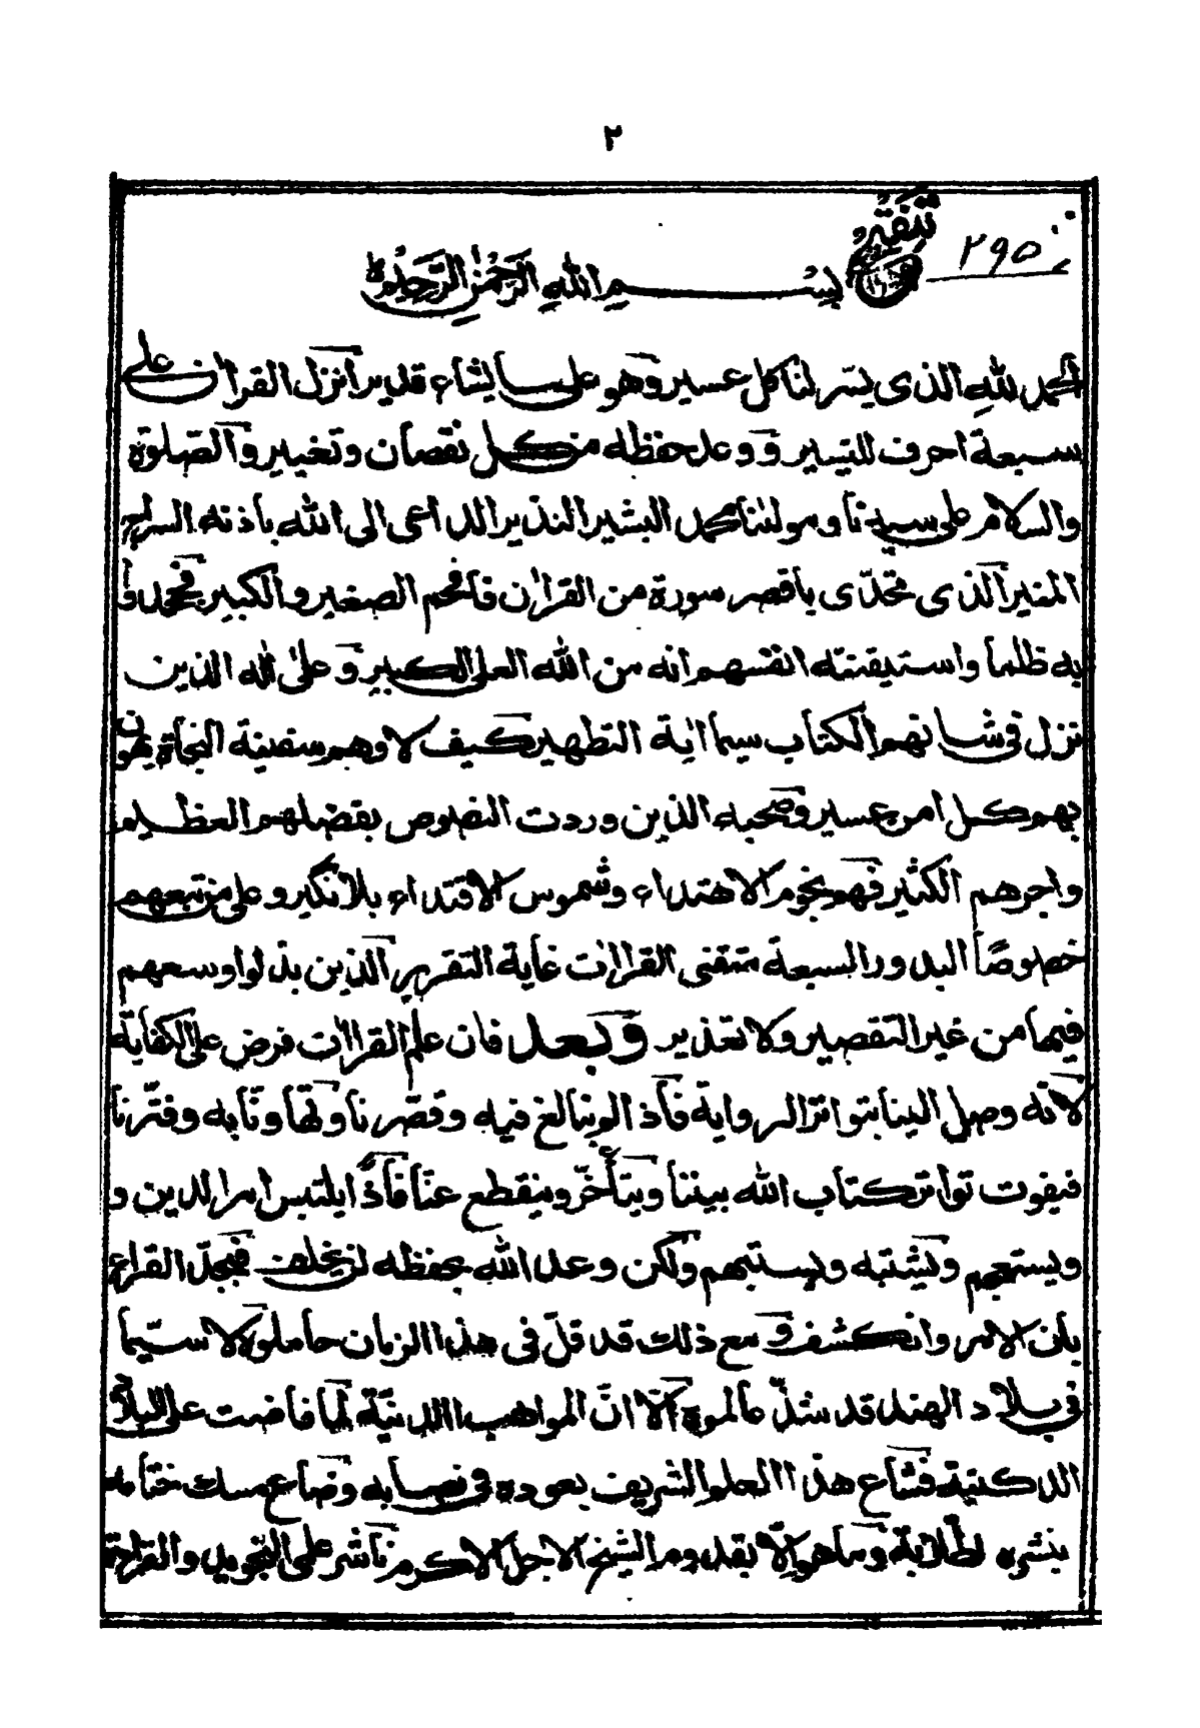 ٢
٢٩٥
بسم الله الرحمن الرحيم
الحمد لله الذى يسر لنا كل عسير وهو على ما يشاء قدير انزل القرآن على
سبعة احرف للتيسير ووعد حفظه من كل نقصان وتغيير والصلوة
والسلام على سيدنا ومولىنا محمد البشير النذير الداعى الى الله باذنه السراج
المنير الذى تحدى باقصر سورة من القران فافحم الصغير والكبير فجحدوا
به ظلما واستيقنته انفسهم انه من الله العلى الكبير وعلى اله الذين
نزل فى شانهم الكتاب سيما اية التطهير كيف لا وهم سفينة النجاة يهون
بهم كل امر عسير وصحبه الذين وردت النصوص بفضلهم العظيم
واجرهم الكثير فهم نجوم الاهتداء وشموس الاقتداء بلا نكير وعلى من تبعهم
خصوصًا البدور السبعة متقنى القراات غاية التقرير الذين بذلوا وسعهم
فيها من غير التقصير ولا تعذير وبعد فان علم القراات فرض على الكفاية
لانه وصل الينا بتواتر الرواية فاذا لم نبالغ فيه وقصّرنا وتهاونّا به وفترنا
فيفوت تواتر كتاب الله بيننا ويتأخّر وينقطع عنّا فاذًا يلتبس امر الدين و
ويستعجم ويشتبه ويستبهم ولكن وعد الله بحفظه لن يخلف فبجدّ القراء
بان الامر وانكشف ومع ذلك قد قلّ فى هذا الزمان حاملوه لا سيّما
فى بلاد الهند قد شذّ عالموه الّا انّ المواهب اللدنيّة لما فاضت على البلاد
الدكنية فشاع هذا العلم الشريف بعوده فى نصابه وضاع مسك ختامه
بنشره لطلّابه وما هو الّا بقدوم الشيخ الاجل الاكرم ناشر علمى التجويد والقراءة